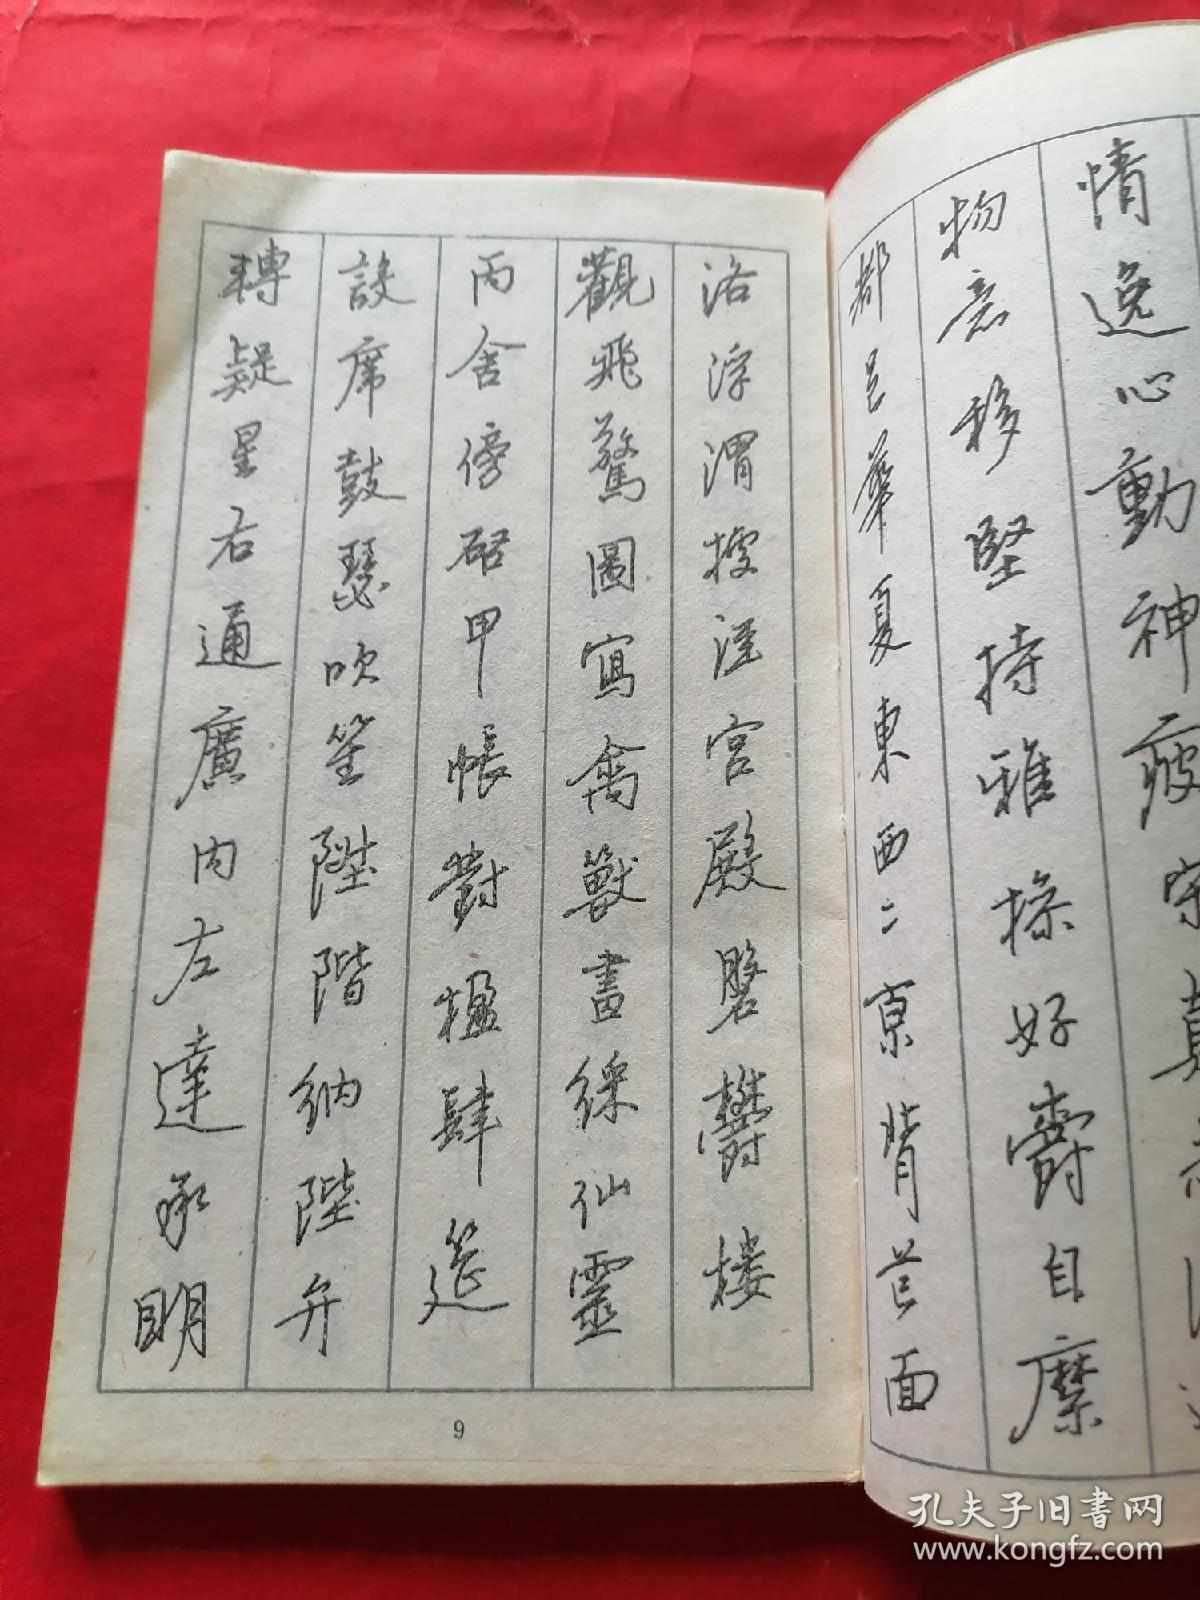 情逸心動神疲守真志
物意移堅持雅操好爵自縻
都邑華夏東西二京背芒面
洛浮渭據涇宮殿磐鬱樓
觀飛驚圖寫禽獸畫綵仙靈
丙舍傍啓甲帳對楹肆筵
設席鼓瑟吹笙陞階納陛弁
轉疑星右通廣內左達承明
9
孔夫子旧书网
www.kongfz.com